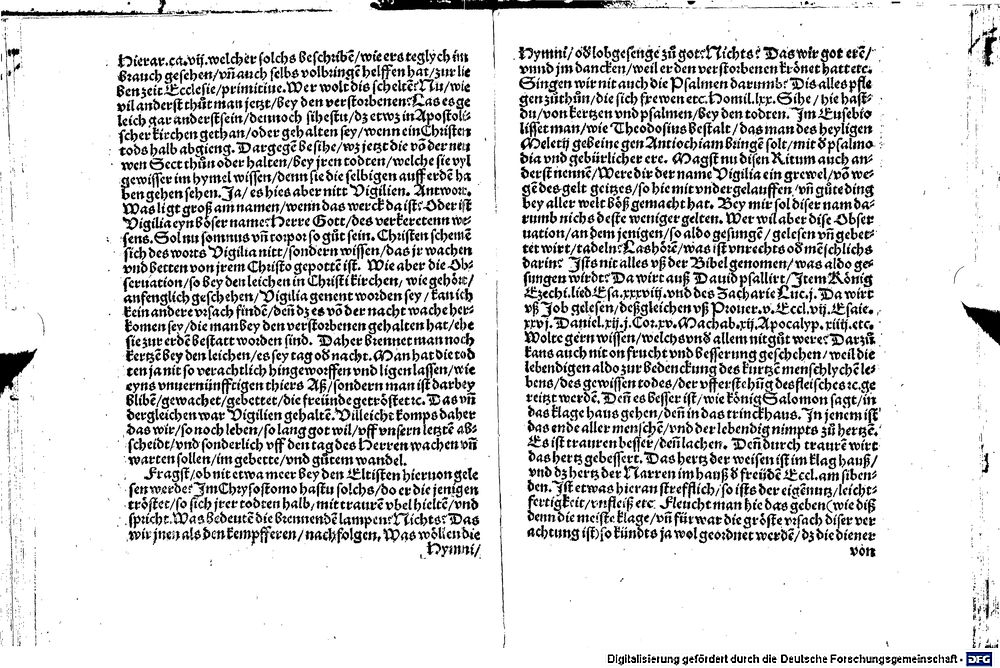 Hierar.ca.vij.welcher solchs beschribẽ/wie ers teglych im
brauch gesehen/vñ auch selbs volbringẽ helffen hat/zur lie
ben zeit Ecclesie/primitiue.Wer wolt dis scheltẽ? Nu/wie
vil anderst thůt man jetzt/bey den verstorbenen? Las es ge
leich gar anderst sein/dennoch sihestu/dz etwz in Apostoli-
scher kirchen gethan/oder gehalten sey/wenn ein Christen
tods halb abgieng. Dargegẽ besihe/wz jetzt die võ der neu
wen Sect thůn oder halten/bey jren todten/welche sie vyl
gewisser im hymel wissen/denn sie die selbigen auff erdẽ ha
ben gehen sehen. Ja/es hies aber nitt Vigilien. Antwort.
Was ligt groß am namen/wenn das werck da ist? Oder ist
Vigilia eyn böser name? Herre Gott/des verkeretenn we-
sens. Sol nu somnus vñ torpor so gůt sein. Christen schemẽ
sich des worts Vigilia nitt/sondern wissen/das jr wachen
vnd betten von jrem Christo gepottẽ ist. Wie aber die Ob-
seruation/so bey den leichen in Christi kirchen/wie gehört/
anfenglich geschehen/Vigilia genent worden sey/kan ich
kein andere vrsach findẽ/deñ dz es võ der nacht wache her-
komen sey/die man bey den verstorbenen gehalten hat/ehe
sie zur erdẽ bestatt worden sind. Daher brennet man noch
kertzẽ bey den leichen/es sey tag oð nacht. Man hat die tod
ten ja nit so verachtlich hingeworffen vnd ligen lassen/wie
eyns vnuernünfftigen thiers Aß/sondern man ist darbey
blibẽ/gewachet/gebettet/die freünde getröstet ꝛc. Das vñ
dergleichen war Vigilien gehaltẽ. Villeicht komps daher
das wir/so noch leben/so lang got wil/vff vnsern letztẽ ab-
scheidt/vnd sonderlich vff den tag des Herren wachen vñ
warten sollen/im gebette/vnd gůtem wandel.
Fragst/ob nit etwa meer bey den Eltisten hieruon gele
sen werde? Im Chrysostomo hastu solchs/do er die jenigen
tröstet/so sich jrer todten halb/mit traurẽ vbel hieltẽ/vnd
spricht. Was bedeutẽ die brennendẽ lampen? Nichts? Das
wir jnen als den kempfferen/nachfolgen, Was wöllen die
Hymni/
Hymni/oð lobgesenge zů got? Nichts? Das wir got erẽ/
vnnd jm dancken/weil er den verstorbenen krönet hatt etc.
Singen wir nit auch die Psalmen darumb? Dis alles pfle
gen zůthůn/die sich frewen etc. Homil.lxx. Sihe/hie hast-
du/von kertzen vnd psalmen/bey den todten. Im Eusebio
lisset man/wie Theodosius bestalt/das man des heyligen
Meletij gebeine gen Antiochiam bringẽ solt/mit ð psalmo
dia vnd gebürlicher ere. Magst nu disen Ritum auch an-
derst nennẽ/Were dir der name Vigilia ein grewel/võ we-
gẽ des gelt geitzes/so hie mit vndergelauffen/vñ gůte ding
bey aller welt böß gemacht hat. Bey mir sol diser nam da-
rumb nichs deste weniger gelten. Wer wil aber dise Obser
uation/an dem jenigen/so aldo gesungẽ/gelesen vñ gebet-
tet wirt/tadeln? Las hörẽ/was ist vnrechts oð mẽschlichs
darin? Ists nit alles vß der Bibel genomen/was aldo ge-
sungen wirdt? Da wirt auß Dauid psalliert/Item König
Ezechi.lied Esa.xxxviij.vnd des Zacharie Luc.j. Da wirt
vß Job gelesen/deßgleichen vß Prouer.v.Eccl.vij.Esaie.
xxvj.Daniel.xij.j.Cor.xv.Machab.xij.Apocalyp.xiiij.etc.
Wolte gern wissen/welchs vnð allem nit gůt were? Darzů
kans auch nit on frucht vnd besserung geschehen/weil die
lebendigen aldo zur bedenckung des kurtzẽ menschlychẽ le-
bens/des gewissen todes/der vfferstehũg des fleisches ꝛc.ge
reitzt werdẽ. Deñ es besser ist/wie könig Salomon sagt/in
das klage haus gehen/deñ in das trinckhaus. In jenem ist
das ende aller menschẽ/vnd der lebendig nimpts zů hertzẽ.
Es ist trauren besser/deñ lachen. Deñ durch traurẽ wirt
das hertz gebessert. Das hertz der weisen ist im klag hauß/
vnd dz hertz der Narren im hauß ð freüdẽ Eccl.am siben-
den. Ist etwas hieran strefflich/so ists der eigẽnutz/leicht-
fertigkeit/vnfleiß etc. Fleucht man hie das geben(wie diß
denn die meiste klage/vñ für war die gröste vrsach diser ver
achtung ist)so kündts ja wol geordnet werdẽ/dz die diener
von
Digitalisierung gefördert durch die Deutsche Forschungsgemeinschaft - DFG